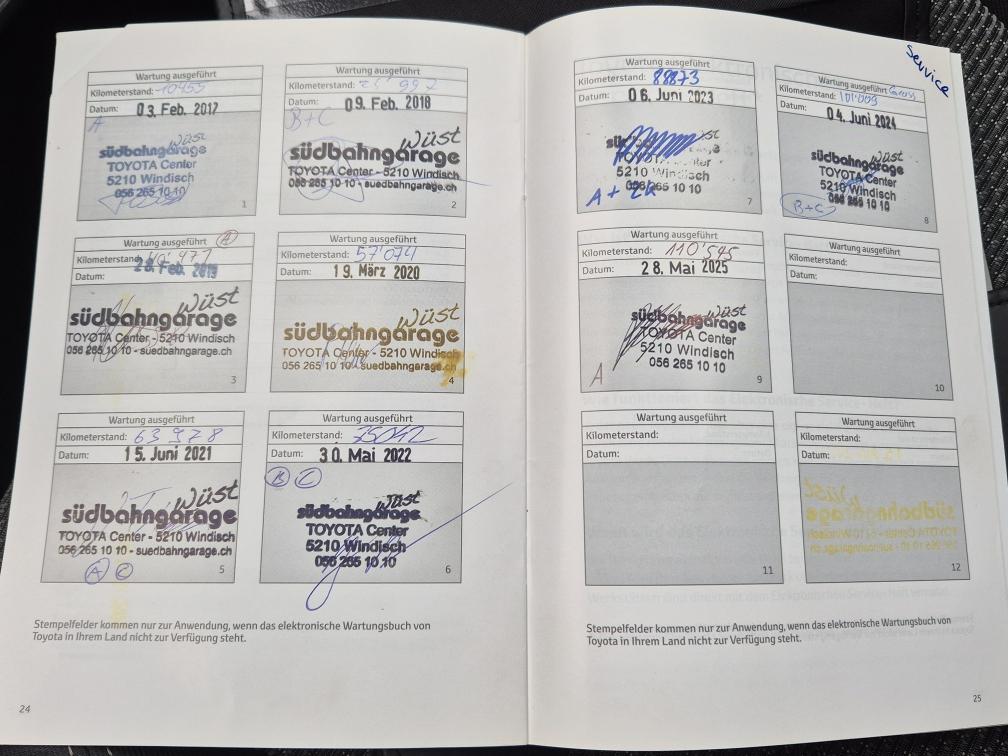 Wartung ausgeführt
Kilometerstand: 10455
Datum: 03. Feb. 2017
A
wüst
südbahngarage
TOYOTA Center
5210 Windisch
056 265 10 10
1
Wartung ausgeführt
Kilometerstand:
Datum: 09. Feb. 2018
B+C
wüst
südbahngarage
TOYOTA Center - 5210 Windisch
056 265 10 10 - suedbahngarage.ch
2
Wartung ausgeführt A
Kilometerstand: 40'977
Datum: 28. Feb. 2019
wüst
südbahngarage
TOYOTA Center - 5210 Windisch
056 265 10 10 - suedbahngarage.ch
3
Wartung ausgeführt
Kilometerstand: 57'074
Datum: 19. März 2020
wüst
südbahngarage
TOYOTA Center - 5210 Windisch
056 265 10 10 - suedbahngarage.ch
4
Wartung ausgeführt
Kilometerstand: 63978
Datum: 15. Juni 2021
wüst
südbahngarage
TOYOTA Center - 5210 Windisch
056 265 10 10 - suedbahngarage.ch
A C
5
Wartung ausgeführt
Kilometerstand: 75042
Datum: 30. Mai 2022
B C
wüst
südbahngarage
TOYOTA Center
5210 Windisch
056 265 10 10
6
Stempelfelder kommen nur zur Anwendung, wenn das elektronische Wartungsbuch von
Toyota in Ihrem Land nicht zur Verfügung steht.
24
Service
Wartung ausgeführt
Kilometerstand: 88873
Datum: 06. Juni 2023
TOYOTA Center
5210 Windisch
056 265 10 10
A + ZK
7
Wartung ausgeführt Gross
Kilometerstand: 101'009
Datum: 04. Juni 2024
wüst
südbahngarage
TOYOTA Center
5210 Windisch
056 265 10 10
B+C
8
Wartung ausgeführt
Kilometerstand: 110'545
Datum: 28. Mai 2025
wüst
südbahngarage
TOYOTA Center
5210 Windisch
056 265 10 10
A
9
Wartung ausgeführt
Kilometerstand:
Datum:
10
Wartung ausgeführt
Kilometerstand:
Datum:
11
Wartung ausgeführt
Kilometerstand:
Datum:
12
Stempelfelder kommen nur zur Anwendung, wenn das elektronische Wartungsbuch von
Toyota in Ihrem Land nicht zur Verfügung steht.
25